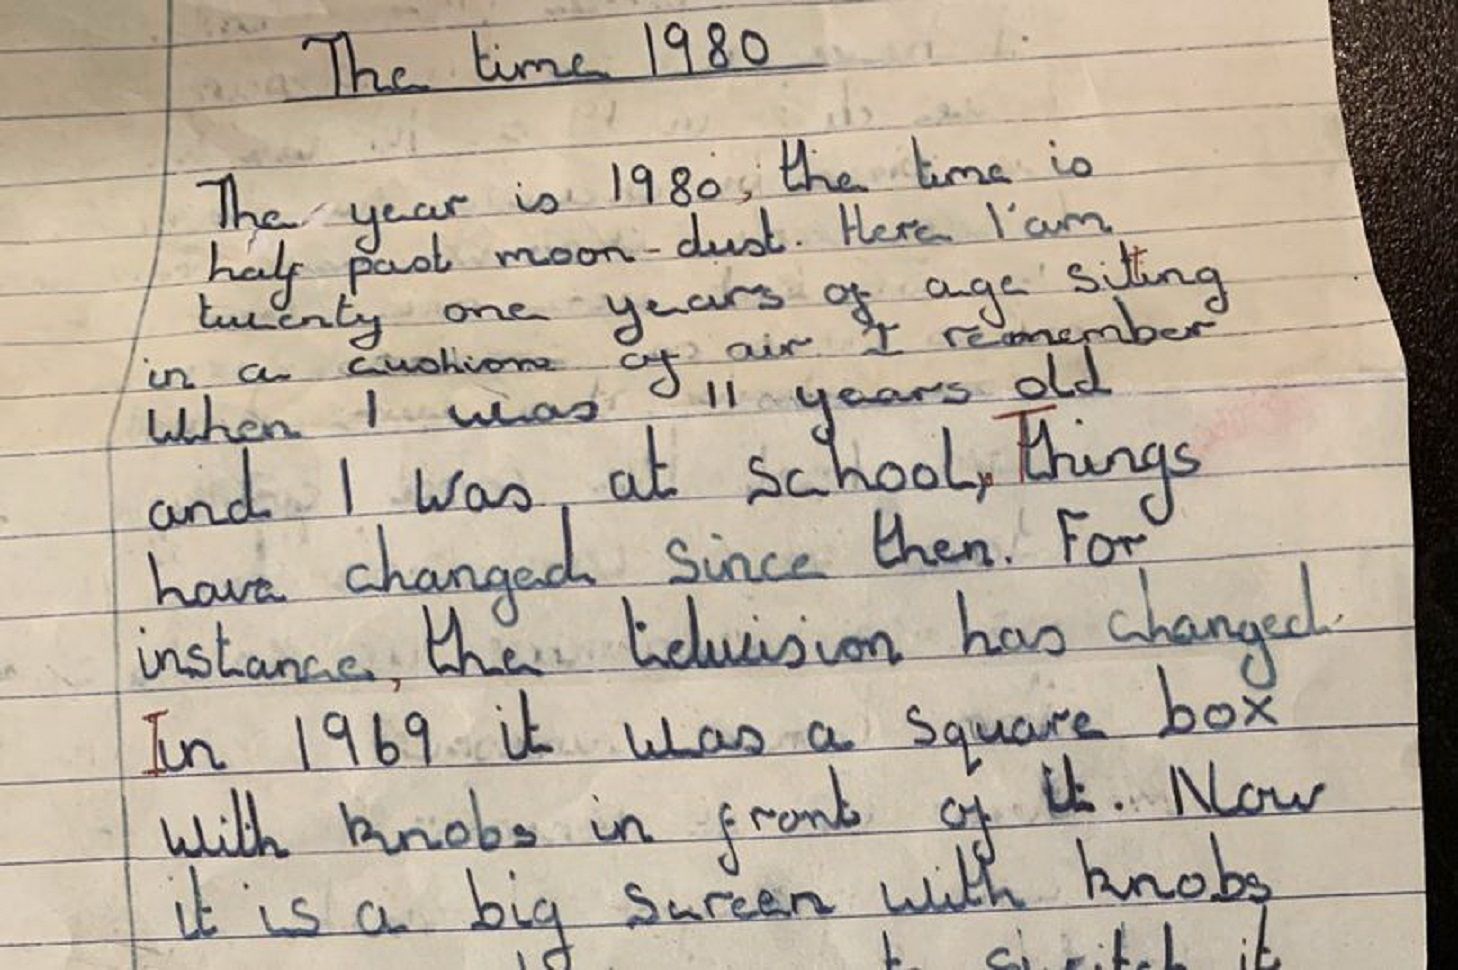 The time 1980
The year is 1980, the time is
half past moon-dust. Here I'am
twenty one years of age sitting
in a cushion of air I remember
When I was 11 years old
and I was at school, Things
have changed since then. For
instance, the television has changed.
In 1969 it was a square box
with knobs in front of it. Now
it is a big screen with knobs
to switch it